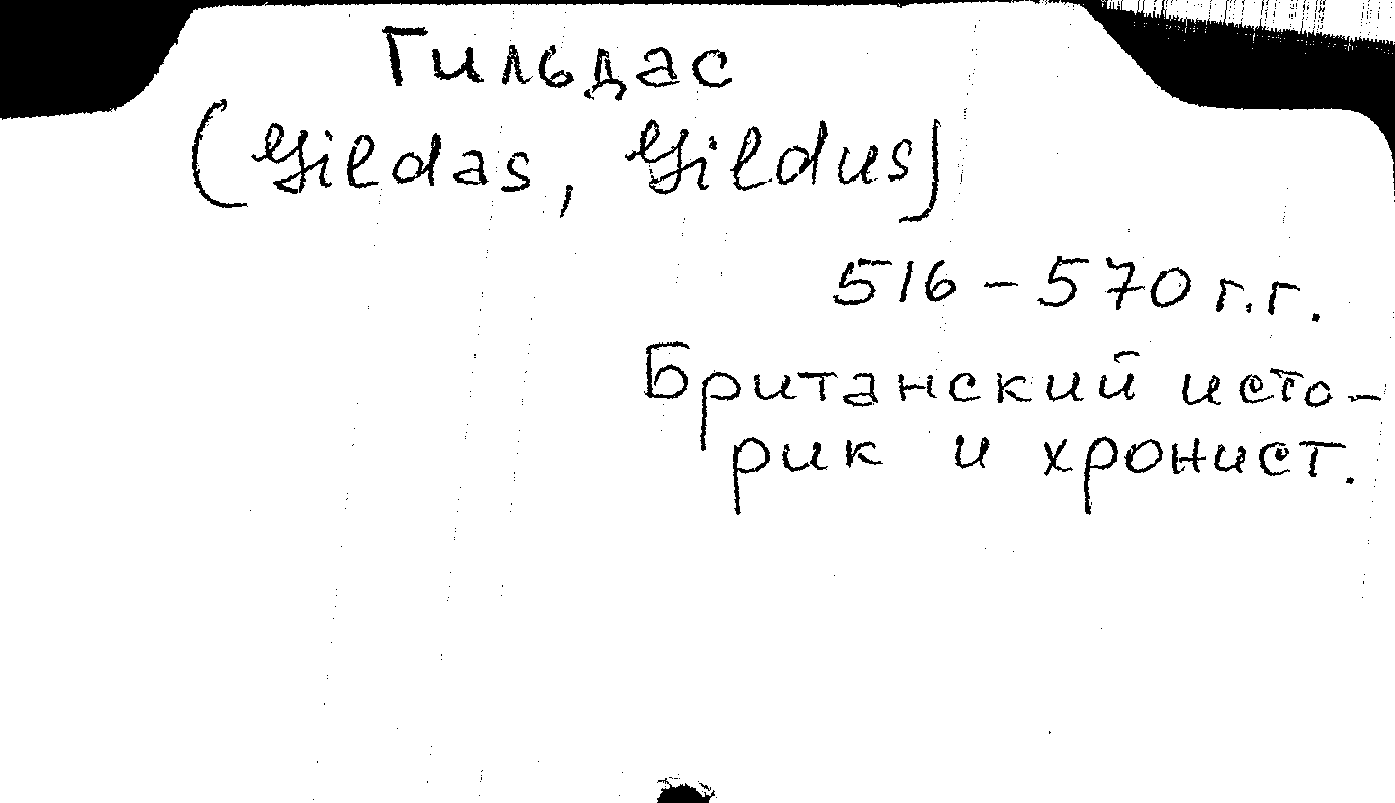 Гильдас
(Gildas, Gildus)
516 – 570 г.г.
Британский исто-
рик и хронист.